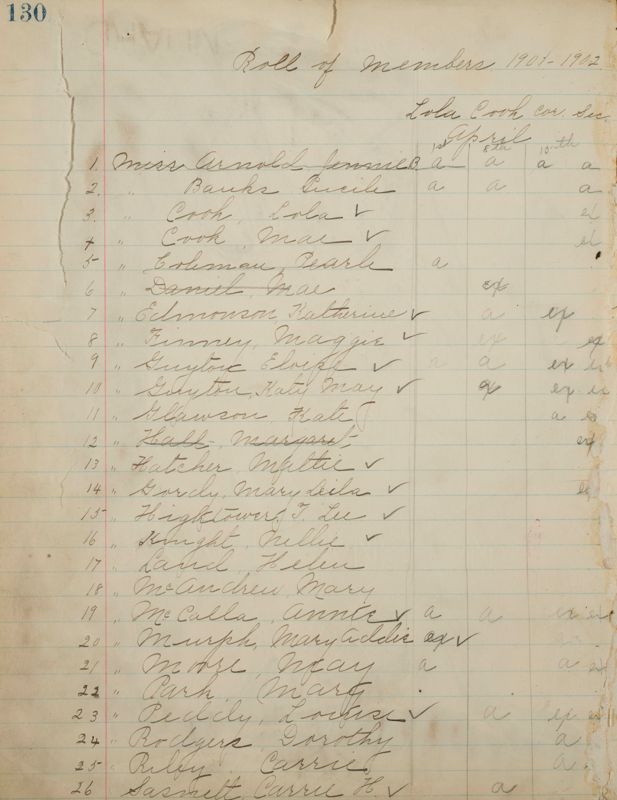 130
Roll of Members 1901-1902
Lola Cook Cor. Sec.
April
1st 8th 10th
1. Miss Arnold Jennie B. a a a a
2. " Banks Lucile a a a
3. " Cook, Lola ✓ ex
4 " Cook, Mae ✓ ex
5 " Coleman, Pearle a
6 " Daniel, Mae ex
7 " Edmonson Katherine ✓ a ex
8 " Finney, Maggie ✓ ex ex
9 " Guyton Eloise ✓ a a ex ex
10 " Guyton, Katy May ✓ a ex ex
11 " Glawson, Kate a
12 " Hall, Margaret ex
13 " Hatcher, Mattie ✓
14 " Gordy, Mary Leila ✓
15 " Hightower, T. Lee ✓
16 " Knight, Nellie ✓
17 " Land, Helen
18 " McAndrew, Mary
19 " McCalla, Annie ✓ a a ex ex
20 " Murph, Mary Addie ex ✓
21 " Moore, May a a
22 " Park, Mary
23 " Peddy, Louise ✓ a ex
24 " Rodgers, Dorothy a
25 " Riley, Carrie a
26 Sasnett, Carrie H ✓ a